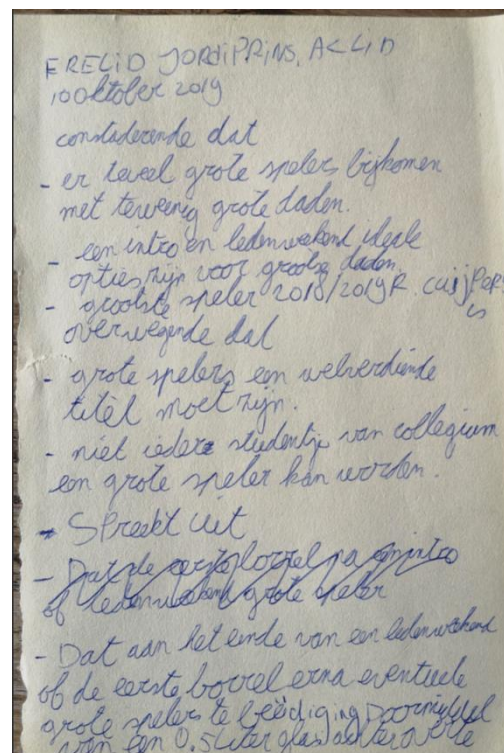 ERELID JORDI PRINS, ACLID
10 Oktober 2019
constaderende dat
- er teveel grote spelers bijkomen
met te weinig grote daden.
- een intro en ledenweekend ideale
opties zijn voor grootse daden.
- grootste speler 2018/2019 R. cuijpers
is
overwegende dat
- grote spelers een welverdiende
titel moet zijn.
- niet iedere studentje van collegium
een grote speler kan worden.
- Spreekt uit
- Dat de eerste borrel na een intro
of ledenweekend grote speler
- Dat aan het einde van een ledenweekend
of de eerste borrel erna eventuele
grote spelers te beëdiging Doormiddel
van een 0.5 liter glas